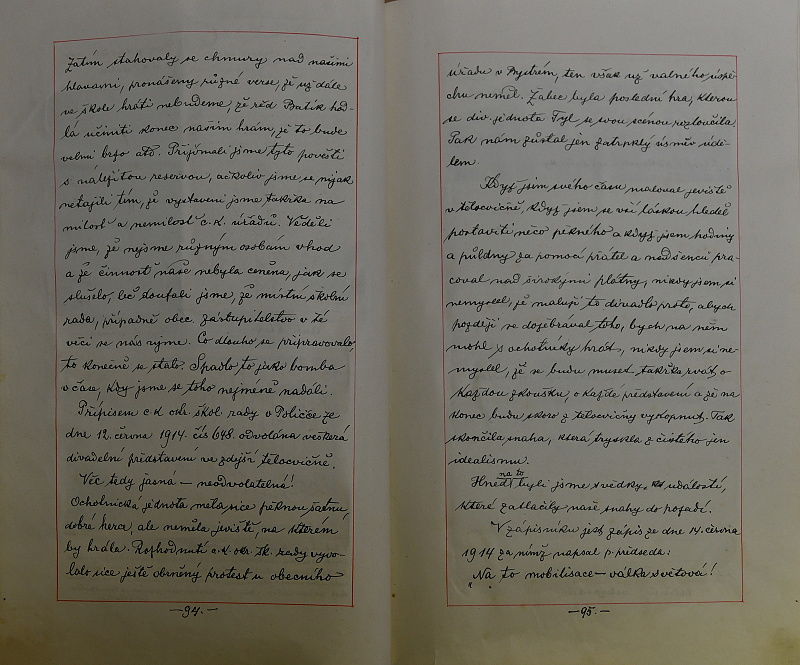 Zatím stahovaly se chmury nad našimi
hlavami, pronášeny různé verse, že už dále
ve škole hráti nebudeme, že řed. Batík hod-
lá učiniti konec našim hrám, je to bude
velmi brzo atd. Přijímali jsme tyto pověsti
s náležitou reservou, ačkoliv jsme se nijak
netajili tím, že vystaveni jsme takřka na
milost a nemilost c. k. úřadů. Věděli
jsme, že nejsme různým osobám vhod
a že činnost naše nebyla ceněna, jak se
slušelo, leč doufali jsme, že místní školní
rada, případně obec. zastupitelstvo v té
věci se nás ujme. Co dlouho se připravovalo,
to konečně se stalo. Spadlo to jako bomba
v čase, kdy jsme se toho nejméně nadáli.
Přípisem c. k. okr. škol. rady v Poličce ze
dne 12. června 1914. čís 648. odvolána veškerá
divadelní představení ve zdejší tělocvičně.
Věc tedy jasná — neodvolatelná!
Ochotnická jednota měla sice pěknou šatnu,
dobré herce, ale neměla jeviště, na kterém
by hrála. Rozhodnutí c. k. okr. šk. rady vyvo-
lalo sice ještě obrněný protest u obecního
—94.—
úřadu v Bystrém, ten však už valného úspě-
chu neměl. Žabec byla poslední hra, kterou
se div. jednota Tyl se svou scénou rozloučila.
Pak nám zůstal jen zatrpklý úsměv údě-
lem.
Když jsem svého času maloval jeviště
v tělocvičně, když jsem se vší láskou hleděl
postaviti něco pěkného a když jsem hodiny
a půldny za pomoci přátel a nadšenců pra-
coval nad širokými plátny, nikdy jsem si
nemyslel, že maluji to divadlo proto, abych
později se dožebrával toho, bych na něm
mohl s ochotníky hrát, nikdy jsem si ne-
myslel, že se budu muset takřka rvát o
každou zkoušku, o každé představení a že na
konec budu skoro z tělocvičny vykopnut. Tak
skončila snaha, která tryskla z čistého jen
idealismu.
Hned na to byli jsme svědky událostí,
které zatlačily naše snahy do pozadí.
V zápisníku jest zápis ze dne 14. června
1914 za nímž napsal p. předseda:
„Na to mobilisace — válka světová!
—95.—